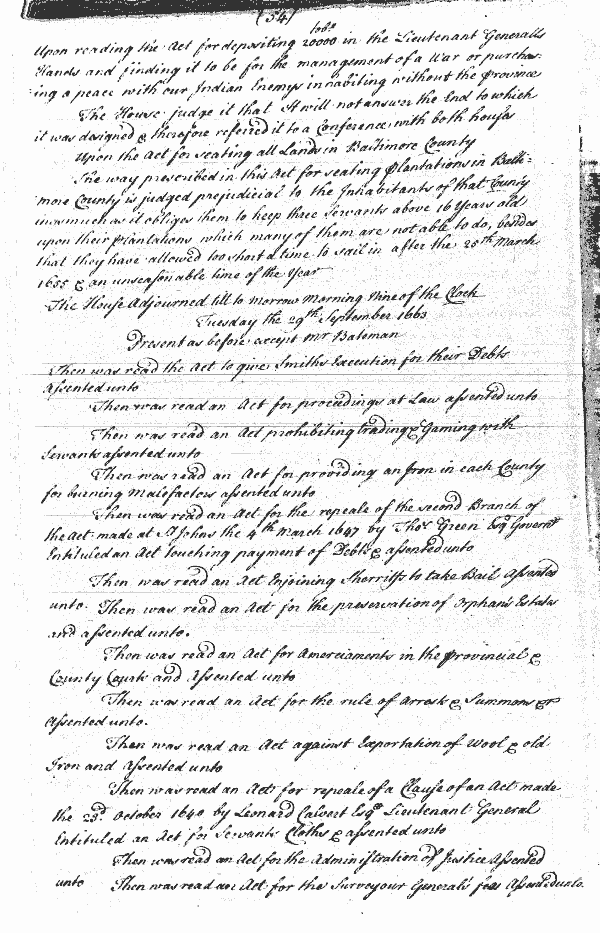 (54)
tobo
Upon reading the Act for depositing 20000 in the Lieutenant Generalls
Hands and finding it to be for the management of a War or purchas:
ing a peace with our Indian Enemys inhabiting without the Province
The House judge it that It will not answer the End to which
it was designed & therefore referred it to a Conference with both houses
Upon the Act for seating all Lands in Baltimore County
The way prescribed in this Act for seating Plantations in Balti:
more County is judged prejudicial to the Inhabitants of that County
inasmuch as it obliges them to keep three Servants above 16 Years old
upon their Plantations which many of them are not able to do, besides
that they have allowed too short a time to sail in after the 25th March
1655 & an unseasonable time of the Year
The House Adjourned till to morrow Morning Nine of the Clock
Tuesday the 29th September 1663
Present as before except Mr Bateman
Then was read the Act to give Smiths Execution for their Debts
Assented unto
Then was read an Act for proceedings at Law assented unto
Then was read an Act prohibiting trading & Gaming with
Servants assented unto
Then was read an Act for providing an Iron in each County
for burning Malefactors assented unto
Then was read an Act for the repeale of the second Branch of
the Act made at St Johns the 4th March 1647 by Thos Green Esqr Governr
Entituled an Act touching payment of Debts & assented unto
Then was read an Act Enjoining Sherriffs to take Bail Assented
unto. Then was read an Act for the preservation of Orphans Estates
and assented unto.
Then was read an Act for Amerciaments in the Provincial &
County Courts and Assented unto
Then was read an Act for the rule of Arrests & Summons &c
Assented unto.
Then was read an Act against Exportation of Wool & old
Iron and Assented unto
Then was read an Act for repeale of a Clause of an Act made
the 23d October 1640 by Leonard Calvert Esqr Lieutenant General
Entituled an Act for Servants Cloths & assented unto
Then was read an Act for the Administration of Justice Assented
unto Then was read an Act for the Surveyour General's fees Assented unto.